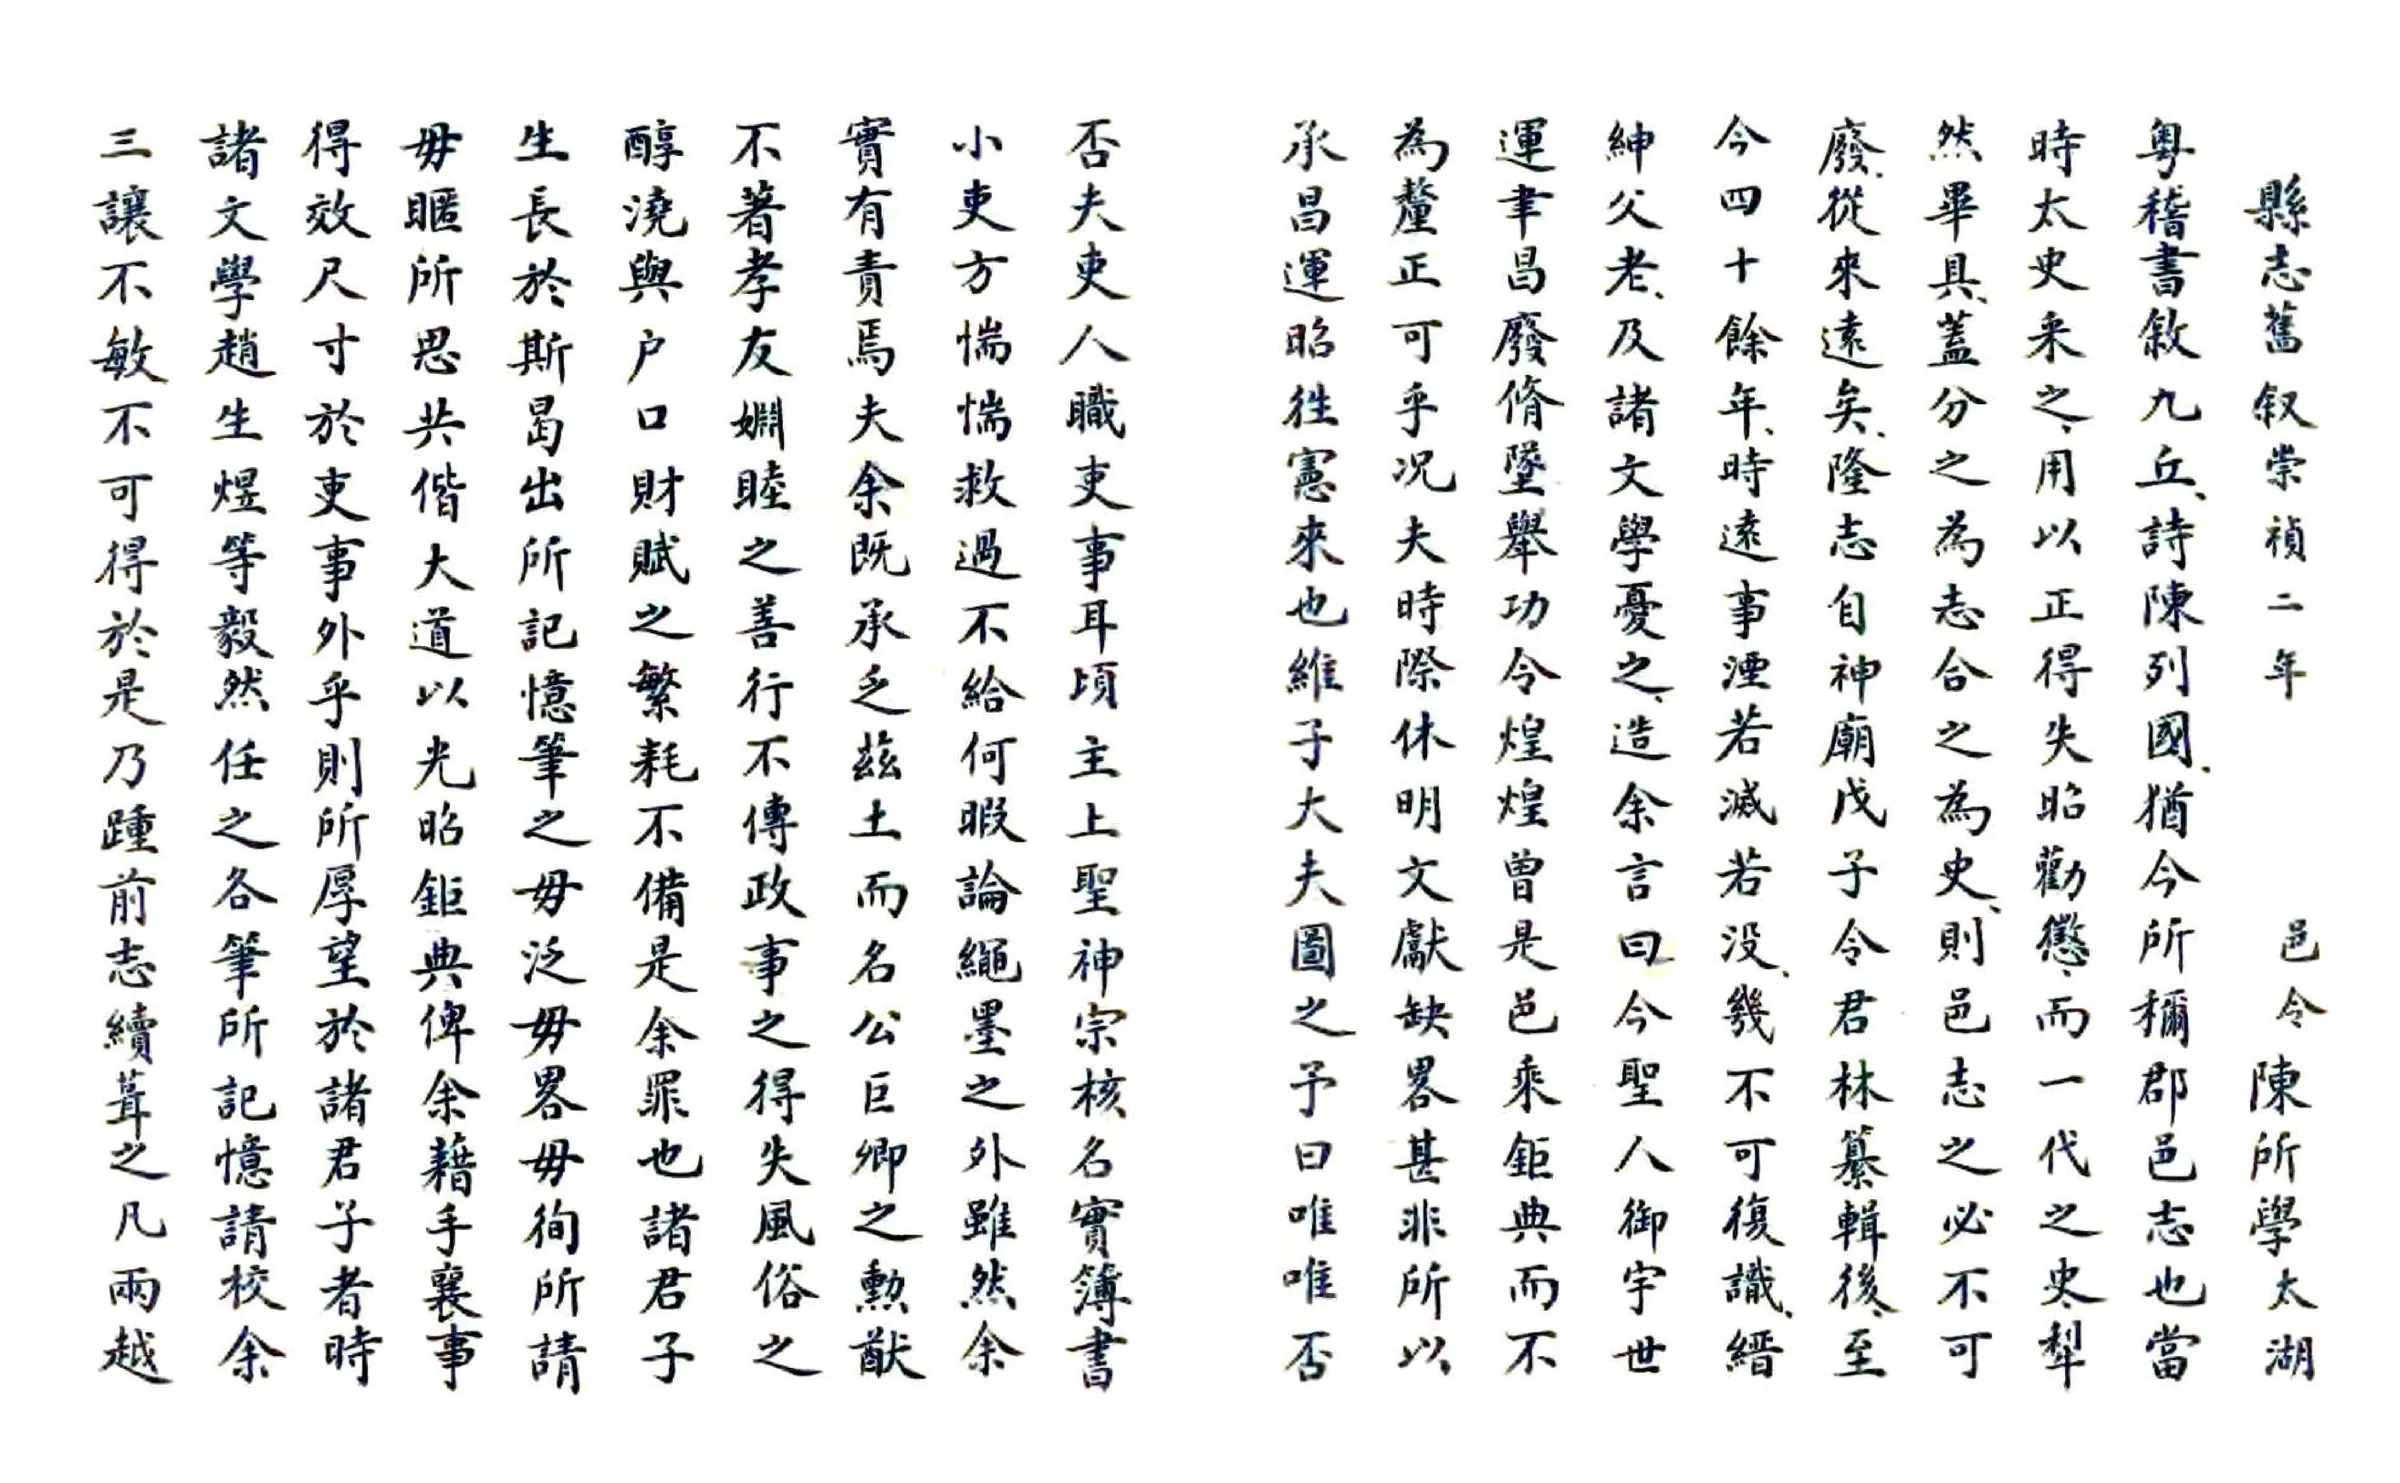 縣志舊叙崇禎二年 邑令陳所學太湖
粵稽書敘九丘、詩陳列國、猶今所稱郡邑志也當
時太史采之、用以正得失昭勸懲、而一代之史、犁
然畢具、蓋分之為志合之為史、則邑志之必不可
廢、從來遠矣、隆志自神廟戊子令君林纂輯後、至
今四十餘年、時遠事湮若滅若没、幾不可復識、縉
紳父老、及諸文學憂之、造余言曰今聖人御宇世
運聿昌廢脩墜舉功令煌煌曾是邑乘鉅典而不
為釐正可乎况夫時際休明文獻缺畧甚非所以
承昌運昭徃憲來也維子大夫圖之予曰唯唯否
否夫吏人職吏事耳頃主上聖神宗核名實簿書
小吏方惴惴救過不給何暇論繩墨之外雖然余
實有責焉夫余既承乏兹土而名公巨卿之勲猷
不著孝友婣睦之善行不傳政事之得失風俗之
醇澆與户口財賦之繁耗不備是余罪也諸君子
生長於斯曷出所記憶筆之毋泛毋畧毋徇所請
毋暱所思共偕大道以光昭鉅典俾余藉手襄事
得效尺寸於吏事外乎則所厚望於諸君子者時
諸文學趙生煜等毅然任之各筆所記憶請校余
三讓不敏不可得於是乃踵前志續葺之凡兩越